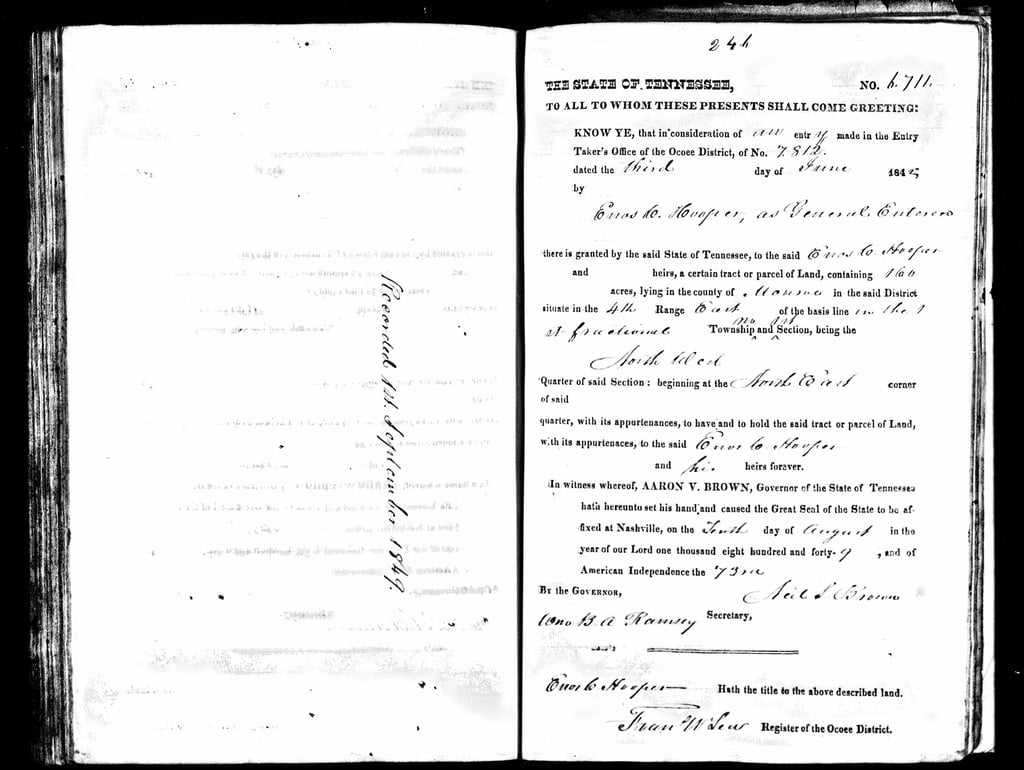 Recorded 1st. September 1849.
246
THE STATE OF TENNESSEE, NO. 6.711.
TO ALL TO WHOM THESE PRESENTS SHALL COME GREETING:
KNOW YE, that in consideration of an entry made in the Entry
Taker's Office of the Ocoee District, of No. 7.812.
dated the third day of June 184
by
Enos C. Hooper, as General Enterer
there is granted by the said State of Tennessee, to the said Enos C Hooper
and heirs, a certain tract or parcel of Land, containing 160
acres, lying in the county of Monroe in the said District
situate in the 4th Range East of the basis line in the 1
st fractional Township and Section, being the
North West
Quarter of said Section: beginning at the North East corner
of said
quarter, with its appurtenances, to have and to hold the said tract or parcel of Land,
with its appurtenaces, to the said Enos C Hooper
and his heirs forever.
In witness whereof, AARON V. BROWN, Governor of the State of Tennessee
hath hereunto set his hand and caused the Great Seal of the State to be af-
fixed at Nashville, on the Tenth day of August in the
year of our Lord one thousand eight hundred and forty-9 , and of
American Independence the 73rd
BY THE GOVERNOR, Neil S Brown
B A Ramsey Secretary,
Enos C Hooper Hath the title to the above described land.
Register of the Ocoee District.